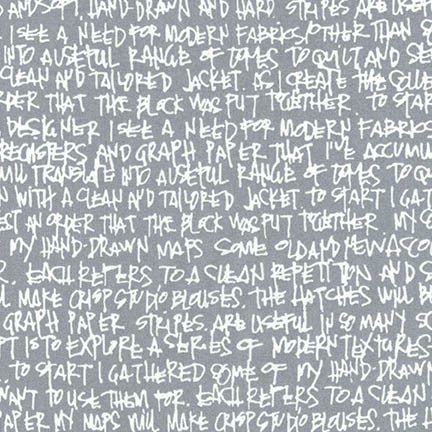 AND SOFT, AND HARD DRAWN AND HARD STRIPES ARE USEFUL
I SEE A NEED FOR MODERN FABRICS, OTHER THAN
INTO A USEFUL RANGE OF TONES TO QUILT AND
CLEAN AND TAILORED JACKET. AS I CREATE THE
ORDER THAT THE BLOCK WAS PUT TOGETHER TO START
DESIGNER I SEE A NEED FOR MODERN FABRICS
AND GRAPH PAPER THAT I'VE ACCUMU
WILL TRANSLATE INTO A USEFUL RANGE OF TONES TO QU
WITH A CLEAN AND TAILORED JACKET TO START I GAT
AN ORDER THAT THE BLOCK WAS PUT TOGETHER MY
MY HAND-DRAWN MAPS SOME OLD AND NEW A CO
EACH REFERS TO A CLEAN REPETITION AND S
MAKE CRISP STUDIO BLOUSES. THE HATCHES WILL B
GRAPH PAPER STRIPES. ARE USEFUL IN SO MANY
PT IS TO EXPLORE A SERIES OF MODERN TEXTURES
TO START I GATHERED SOME OF MY HAND-DRAWN
WANT TO USE THEM FOR. EACH REFERS TO A CLEAN
PAPER MY MAPS WILL MAKE CRISP STUDIO BLOUSES. THE